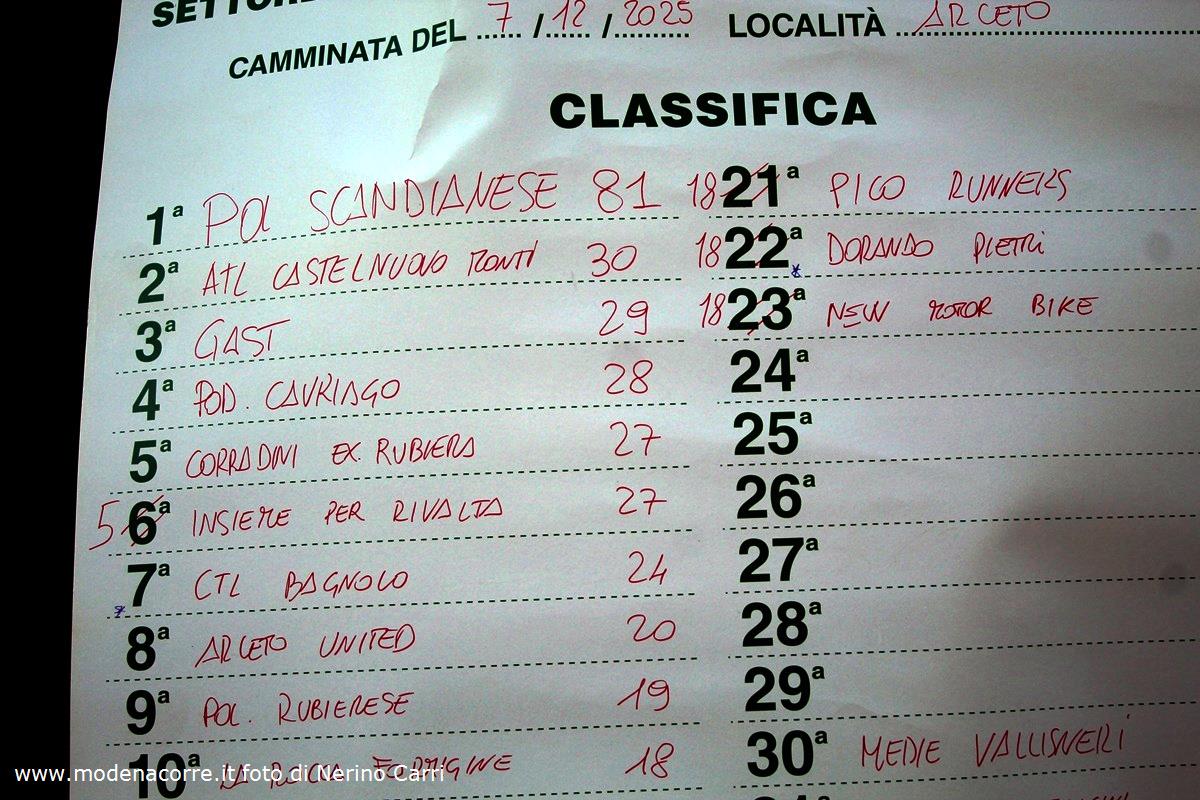 SETTORE
CAMMINATA DEL 7 / 12 / 2025 LOCALITÀ ARCETO
CLASSIFICA
1ª POL SCANDIANESE 81
2ª ATL CASTELNUOVO MONTI 30
3ª GAST 29
4ª POD. CAVRIAGO 28
5ª CORRADINI EX. RUBIERA 27
5 6ª INSIEME PER RIVALTA 27
* 7ª CTL BAGNOLO 24
8ª ARCETO UNITED 20
9ª POL. RUBIERESE 19
10ª LA FORMIGINE 18
18 21ª PICO RUNNERS
18 22ª * DORANDO PIETRI
18 23ª NEW MOTOR BIKE
24ª
25ª
26ª
27ª
28ª
29ª
30ª MEDIE VALLISNERI
www.modenacorre.it foto di Nerino Carri